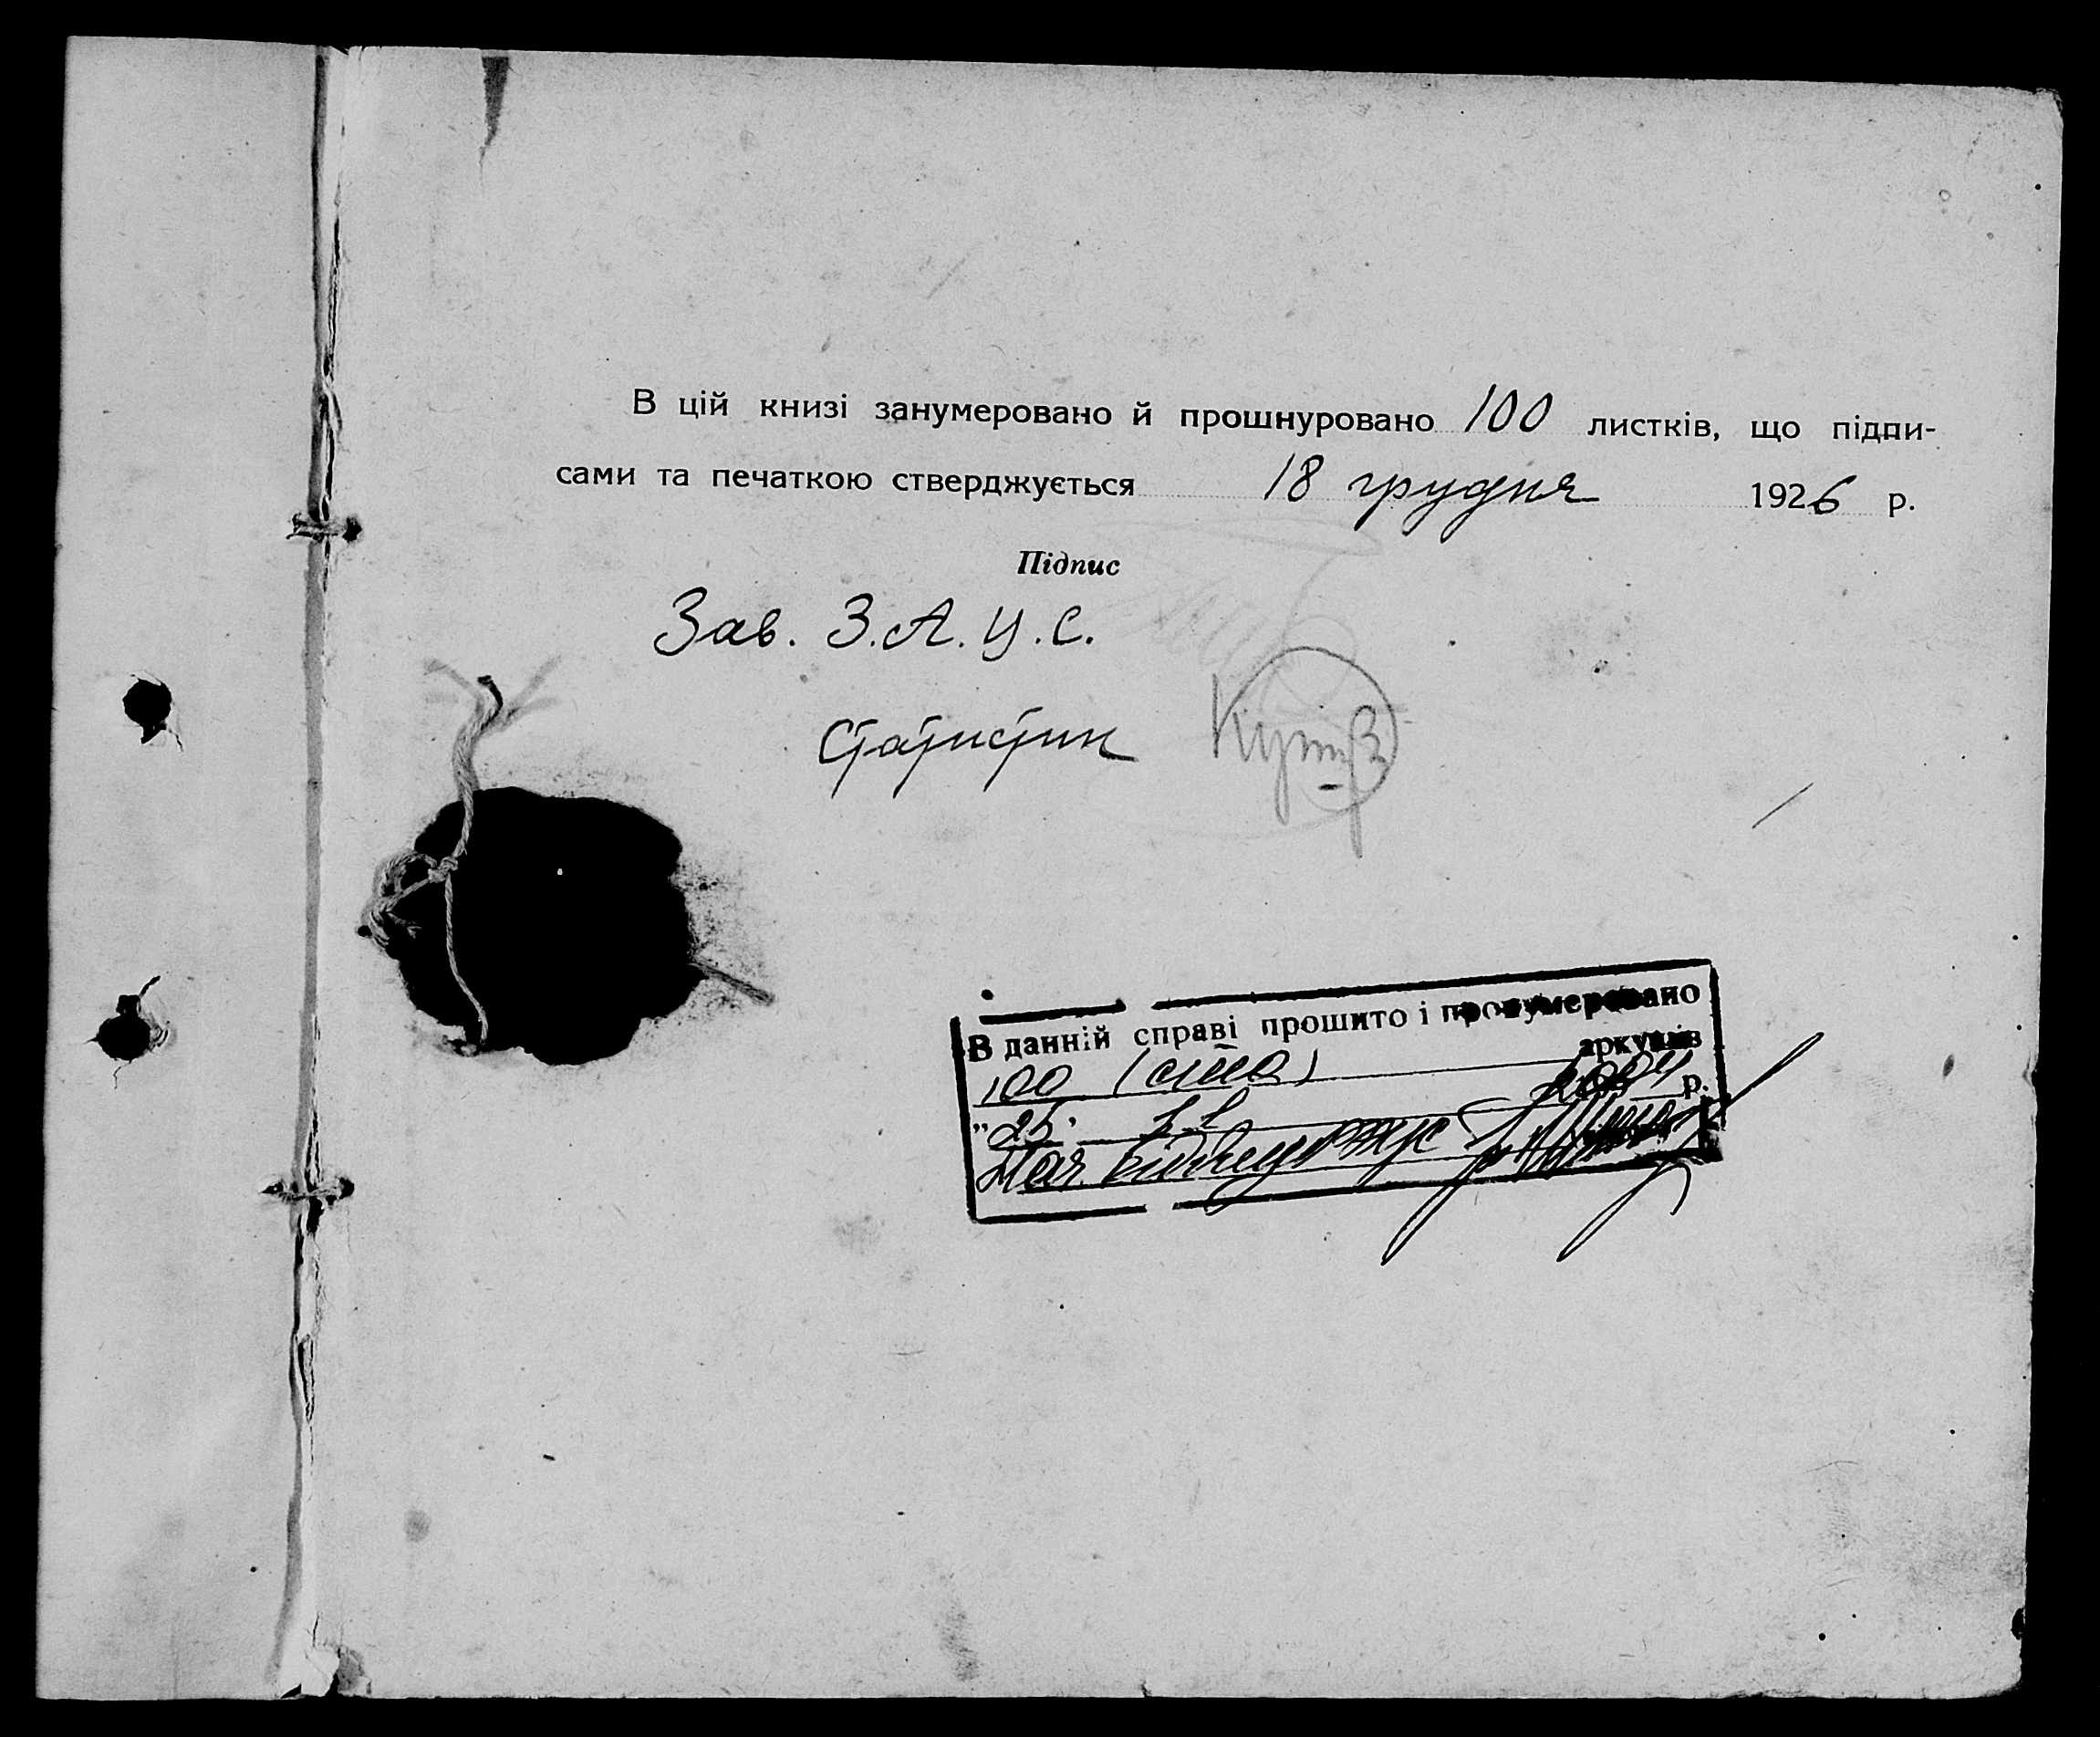 В цій книзі занумеровано й прошнуровано 100 листків, що підпи-
сами та печаткою стверджується 18 грудня 1926 р.
Підпис
Зав. З.А.У.С.
Статистик
В данній справі прошито і пронумеровано
100 (сто) аркушів
"25" 11 2004 р.
Нач. відділу РАЦС